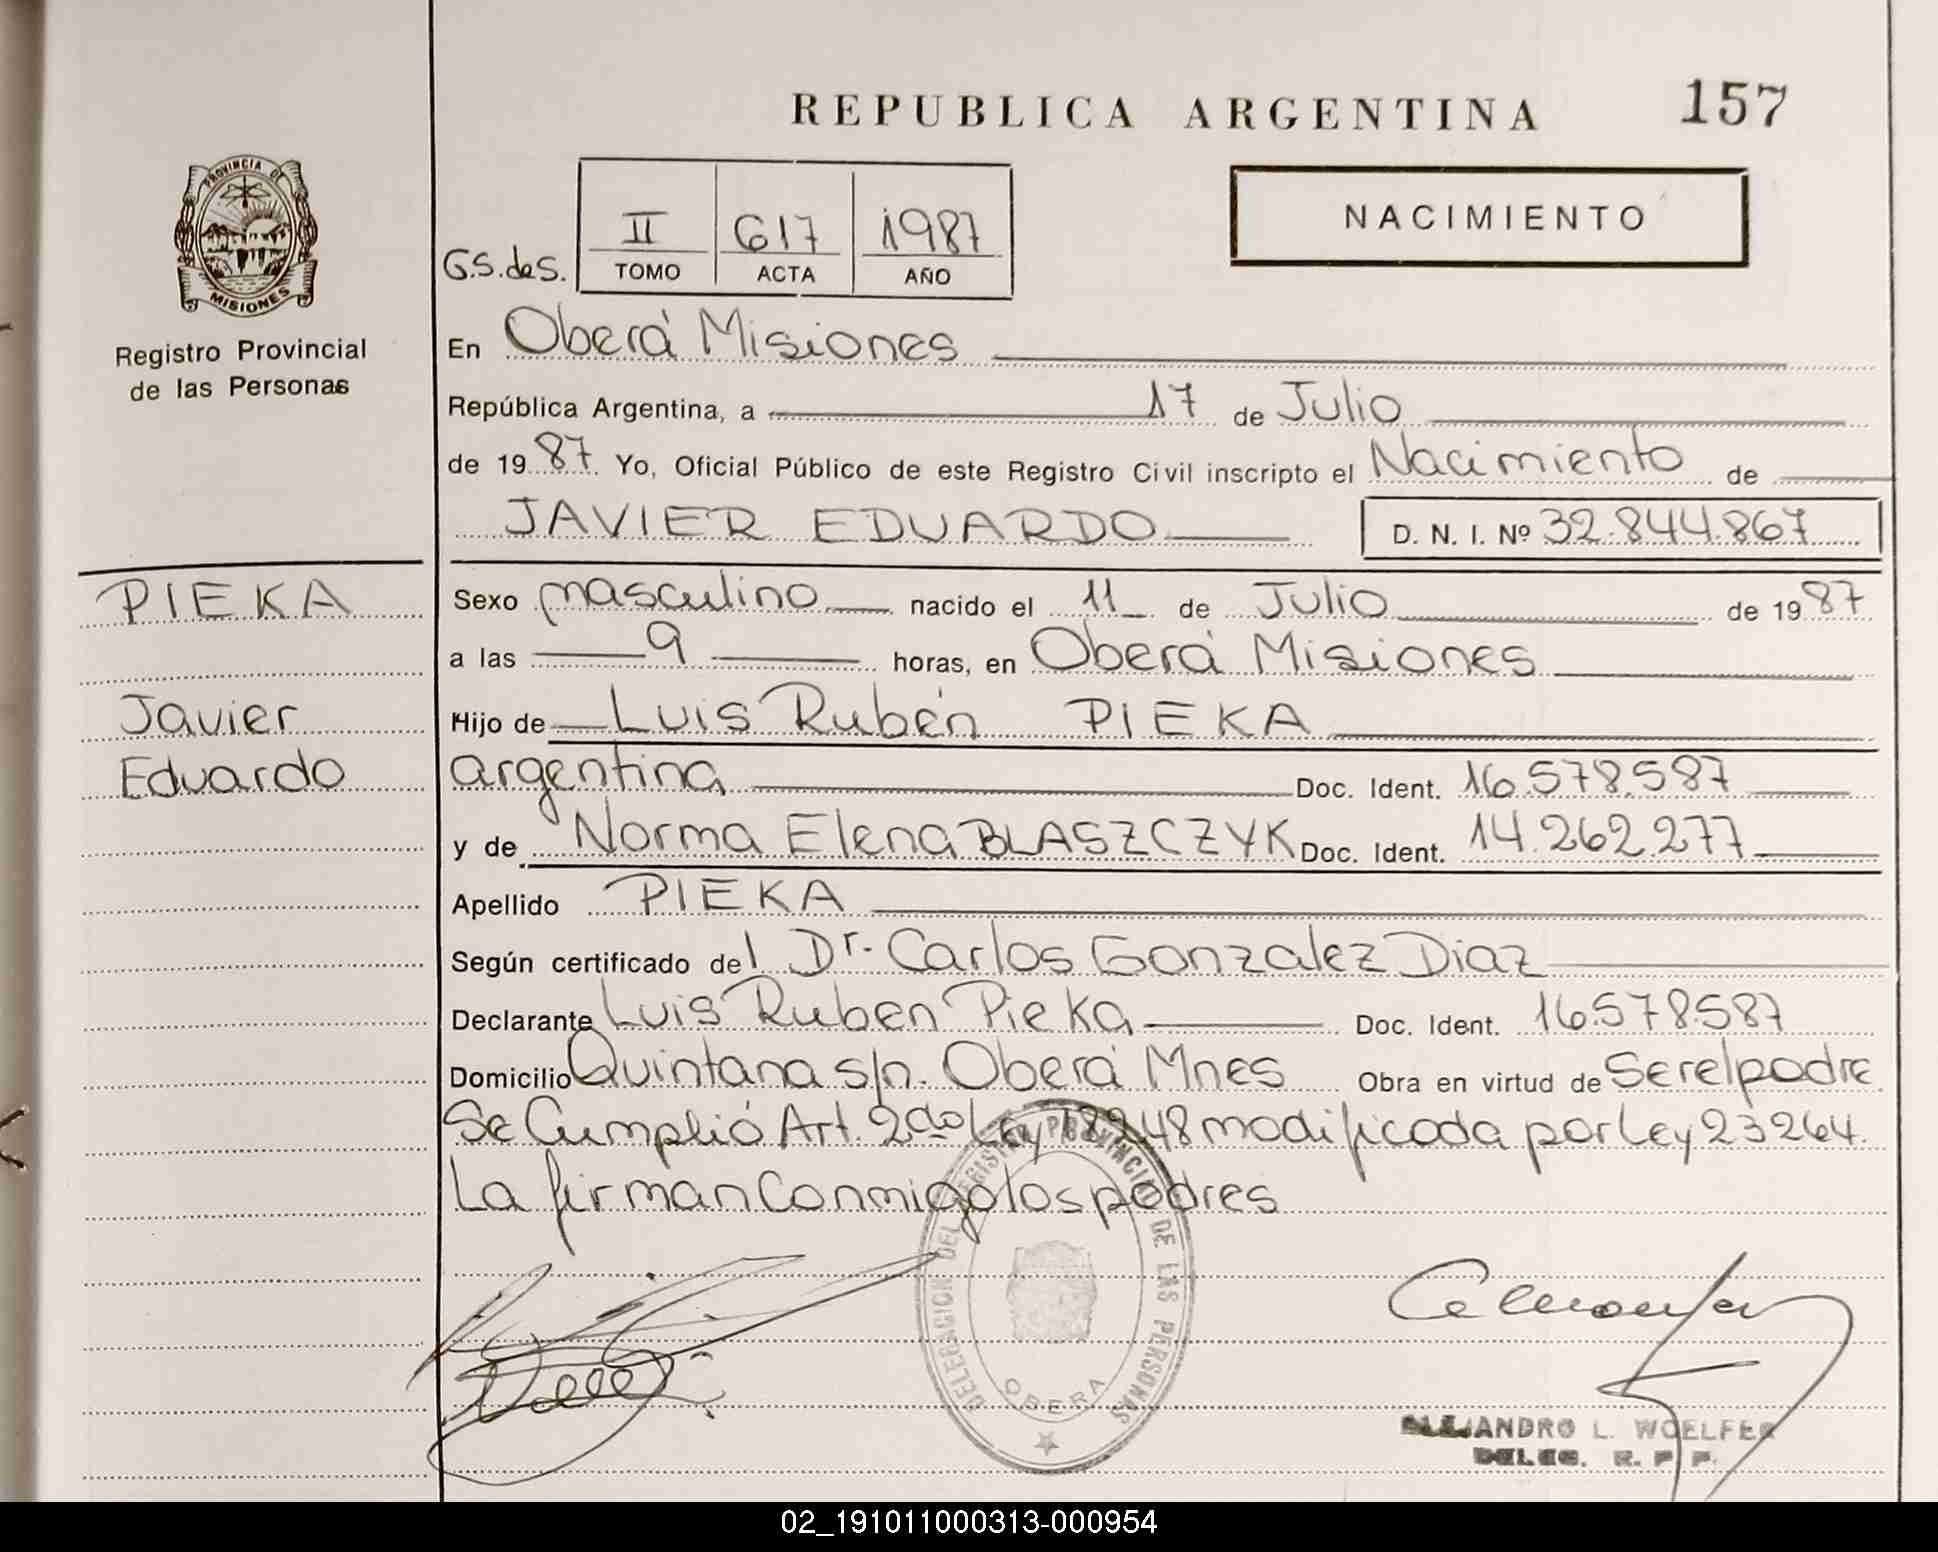 REPUBLICA ARGENTINA 157
PROVINCIA DE
MISIONES
Registro Provincial
de las Personas
G.S. des.
II 617 1987
TOMO ACTA AÑO
NACIMIENTO
En Oberá Misiones
República Argentina, a 17 de Julio
de 1987. Yo, Oficial Público de este Registro Civil inscripto el Nacimiento de
JAVIER EDUARDO D. N. I. Nº 32.844.867
PIEKA
Javier
Eduardo
Sexo masculino nacido el 11 de Julio de 1987
a las 9 horas, en Oberá Misiones
Hijo de Luis Rubén PIEKA
argentina Doc. Ident. 16.578.587
y de Norma Elena BLASZCZYK Doc. Ident. 14.262.277
Apellido PIEKA
Según certificado del Dr. Carlos Gonzalez Diaz
Declarante Luis Ruben Pieka Doc. Ident. 16.578.587
Domicilio Quintana s/n. Oberá Mnes Obra en virtud de Ser el padre
Se Cumplió Art. 2do Ley 18248 modificada por Ley 23264.
La firman Conmigo los padres
DELEGACION DEL REGISTRO PROVINCIAL DE LAS PERSONAS
OBERA
ALEJANDRO L. WOELFER
DELEG. R. P. P.
02_191011000313-000954